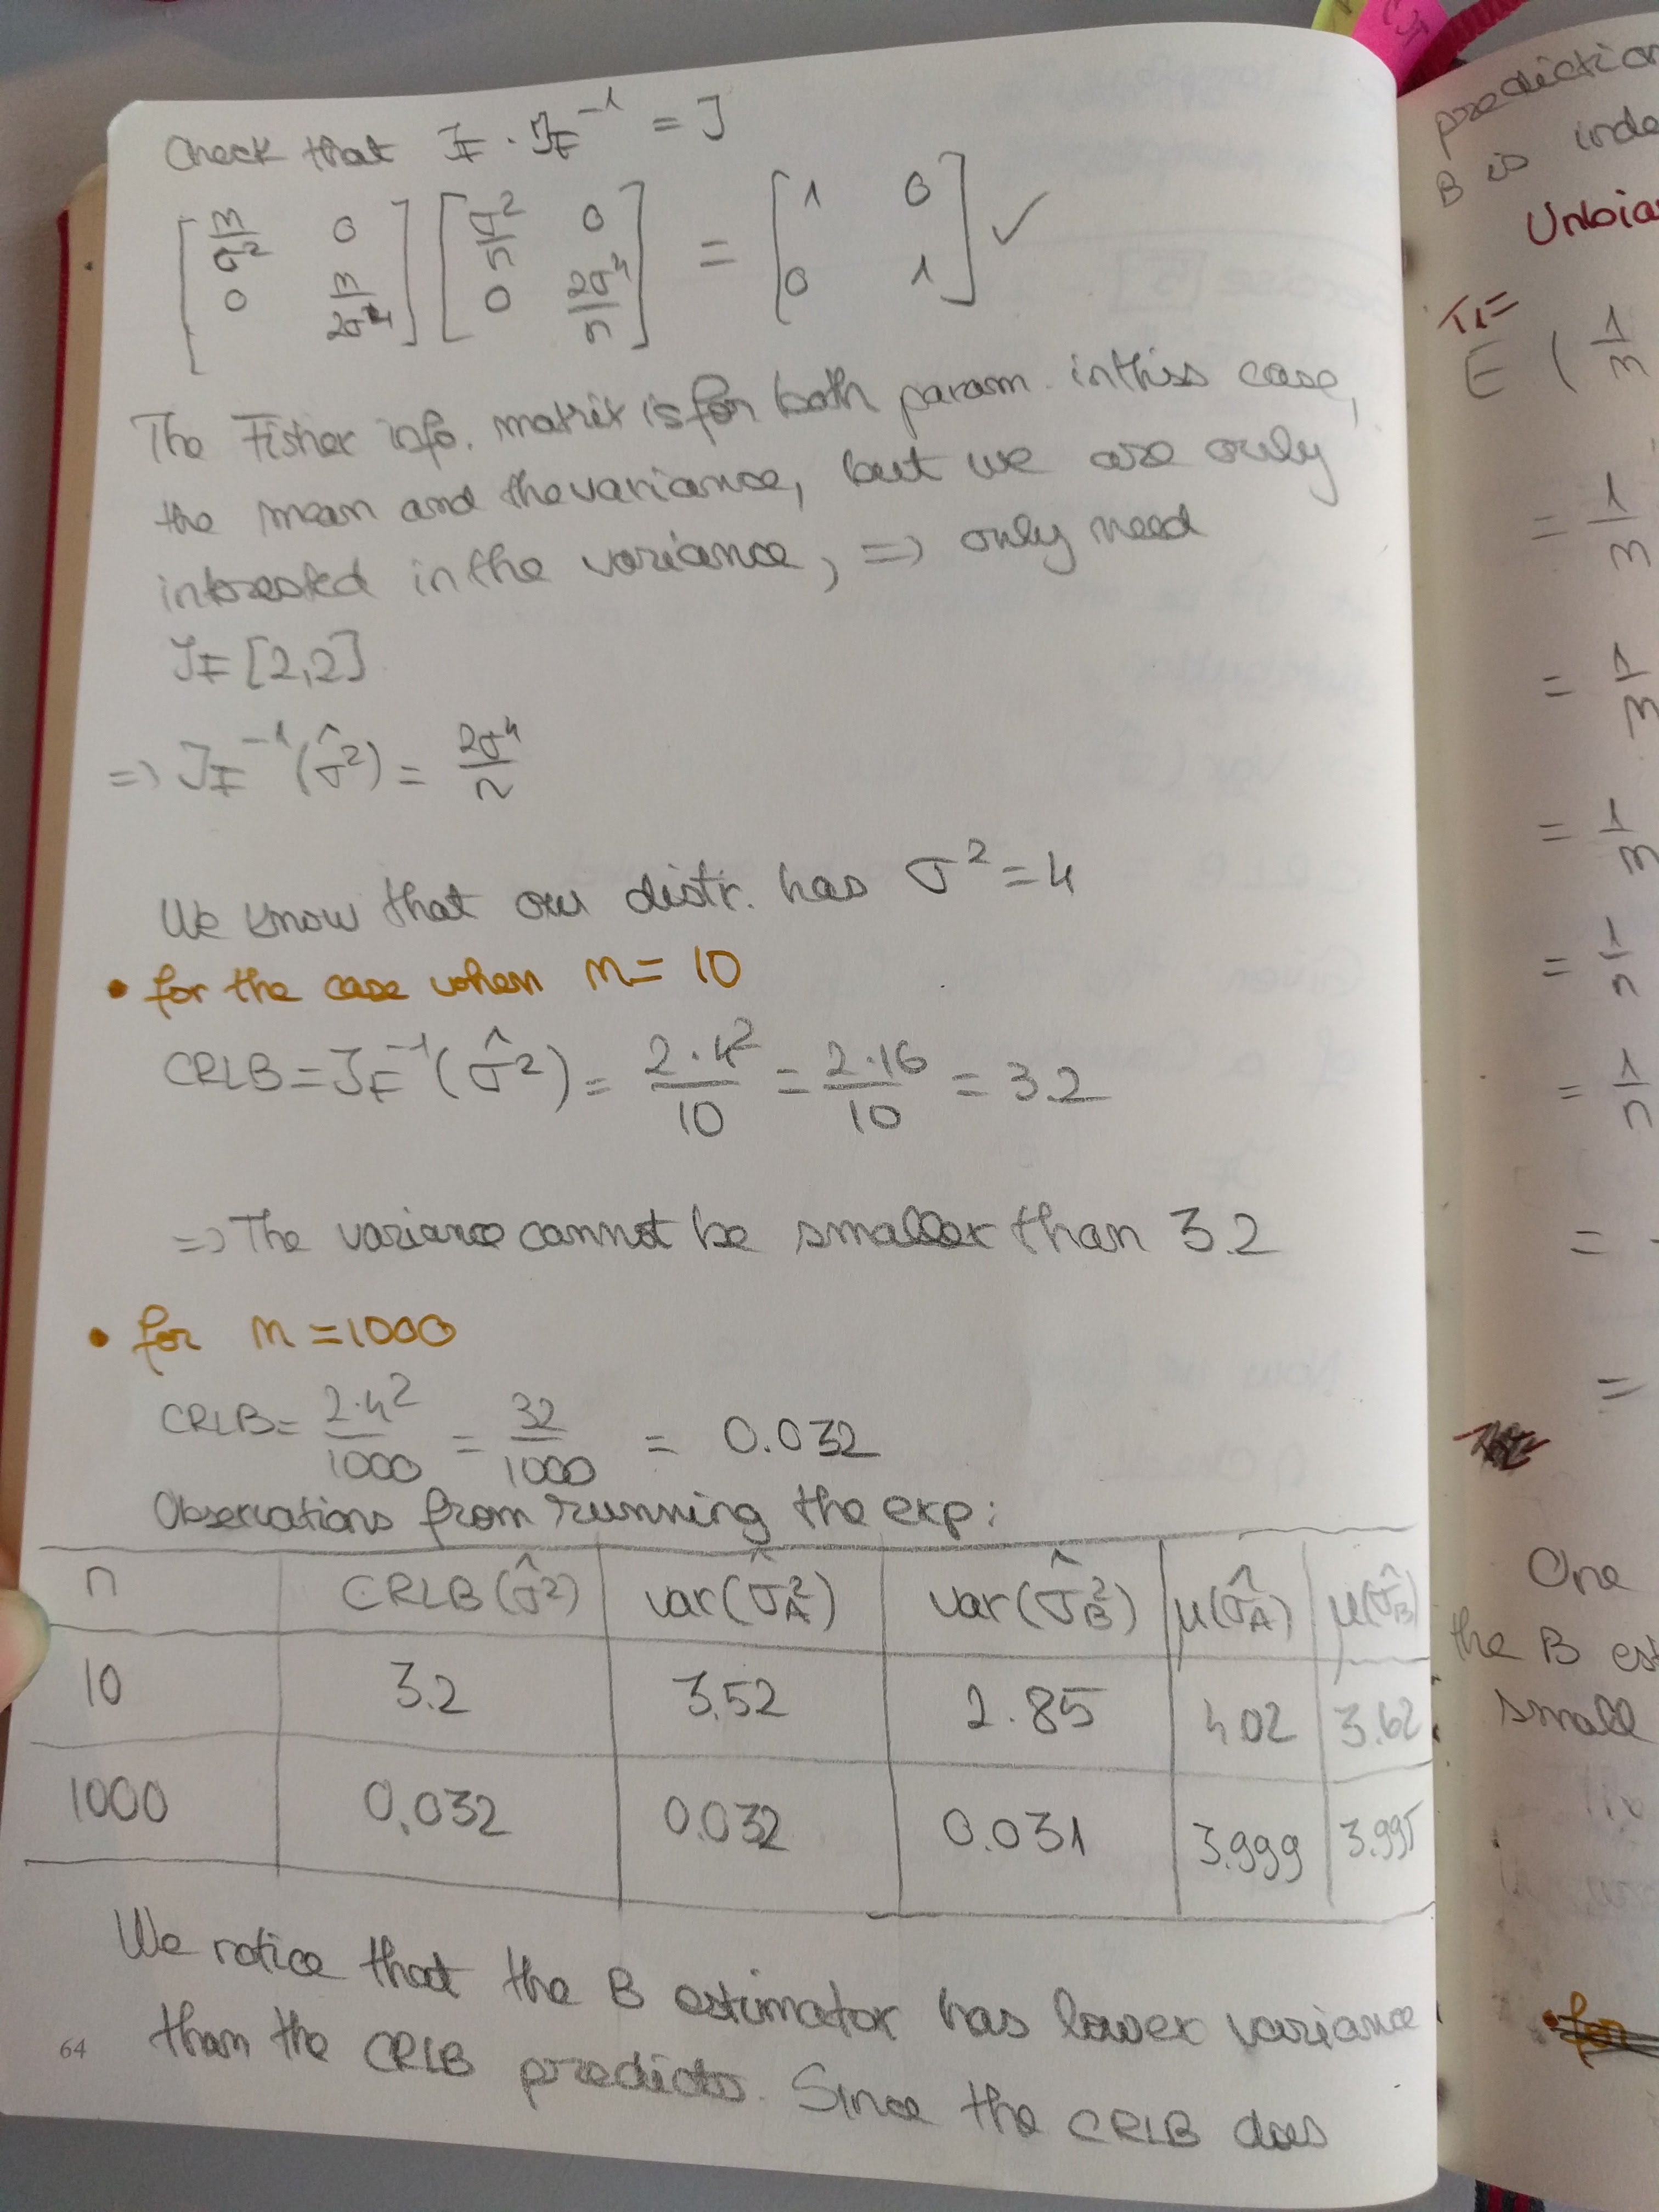 Check that I_F · I_F^-1 = I
[n/σ² 0; 0 n/2σ⁴] [σ²/n 0; 0 2σ⁴/n] = [1 0; 0 1] ✓
The Fisher info. matrix is for both param. in this case,
the mean and the variance, but we are only
interested in the variance, => only need
I_F [2,2]
=> I_F^-1 (σ̂²) = 2σ⁴/n
We know that our distr. has σ² = 4
• for the case when n = 10
CRLB = I_F^-1 (σ̂²) = 2·4²/10 = 2·16/10 = 3.2
=> The variance cannot be smaller than 3.2
• for n = 1000
CRLB = 2·4²/1000 = 32/1000 = 0.032
Observations from running the exp:
n CRLB(σ̂²) var(σ̂²_A) var(σ̂²_B) μ(σ̂_A) μ(σ̂_B)
10 3.2 3.52 2.85 4.02 3.62
1000 0.032 0.032 0.031 3.999 3.995
We notice that the B estimator has lower variance
than the CRLB predicts. Since the CRLB does
64
prediction
B is inde
Unbia
E ( 1/n
= 1/n
= 1/n
= 1/n
= 1/n
= 1/n
=
=
One
the B est
small